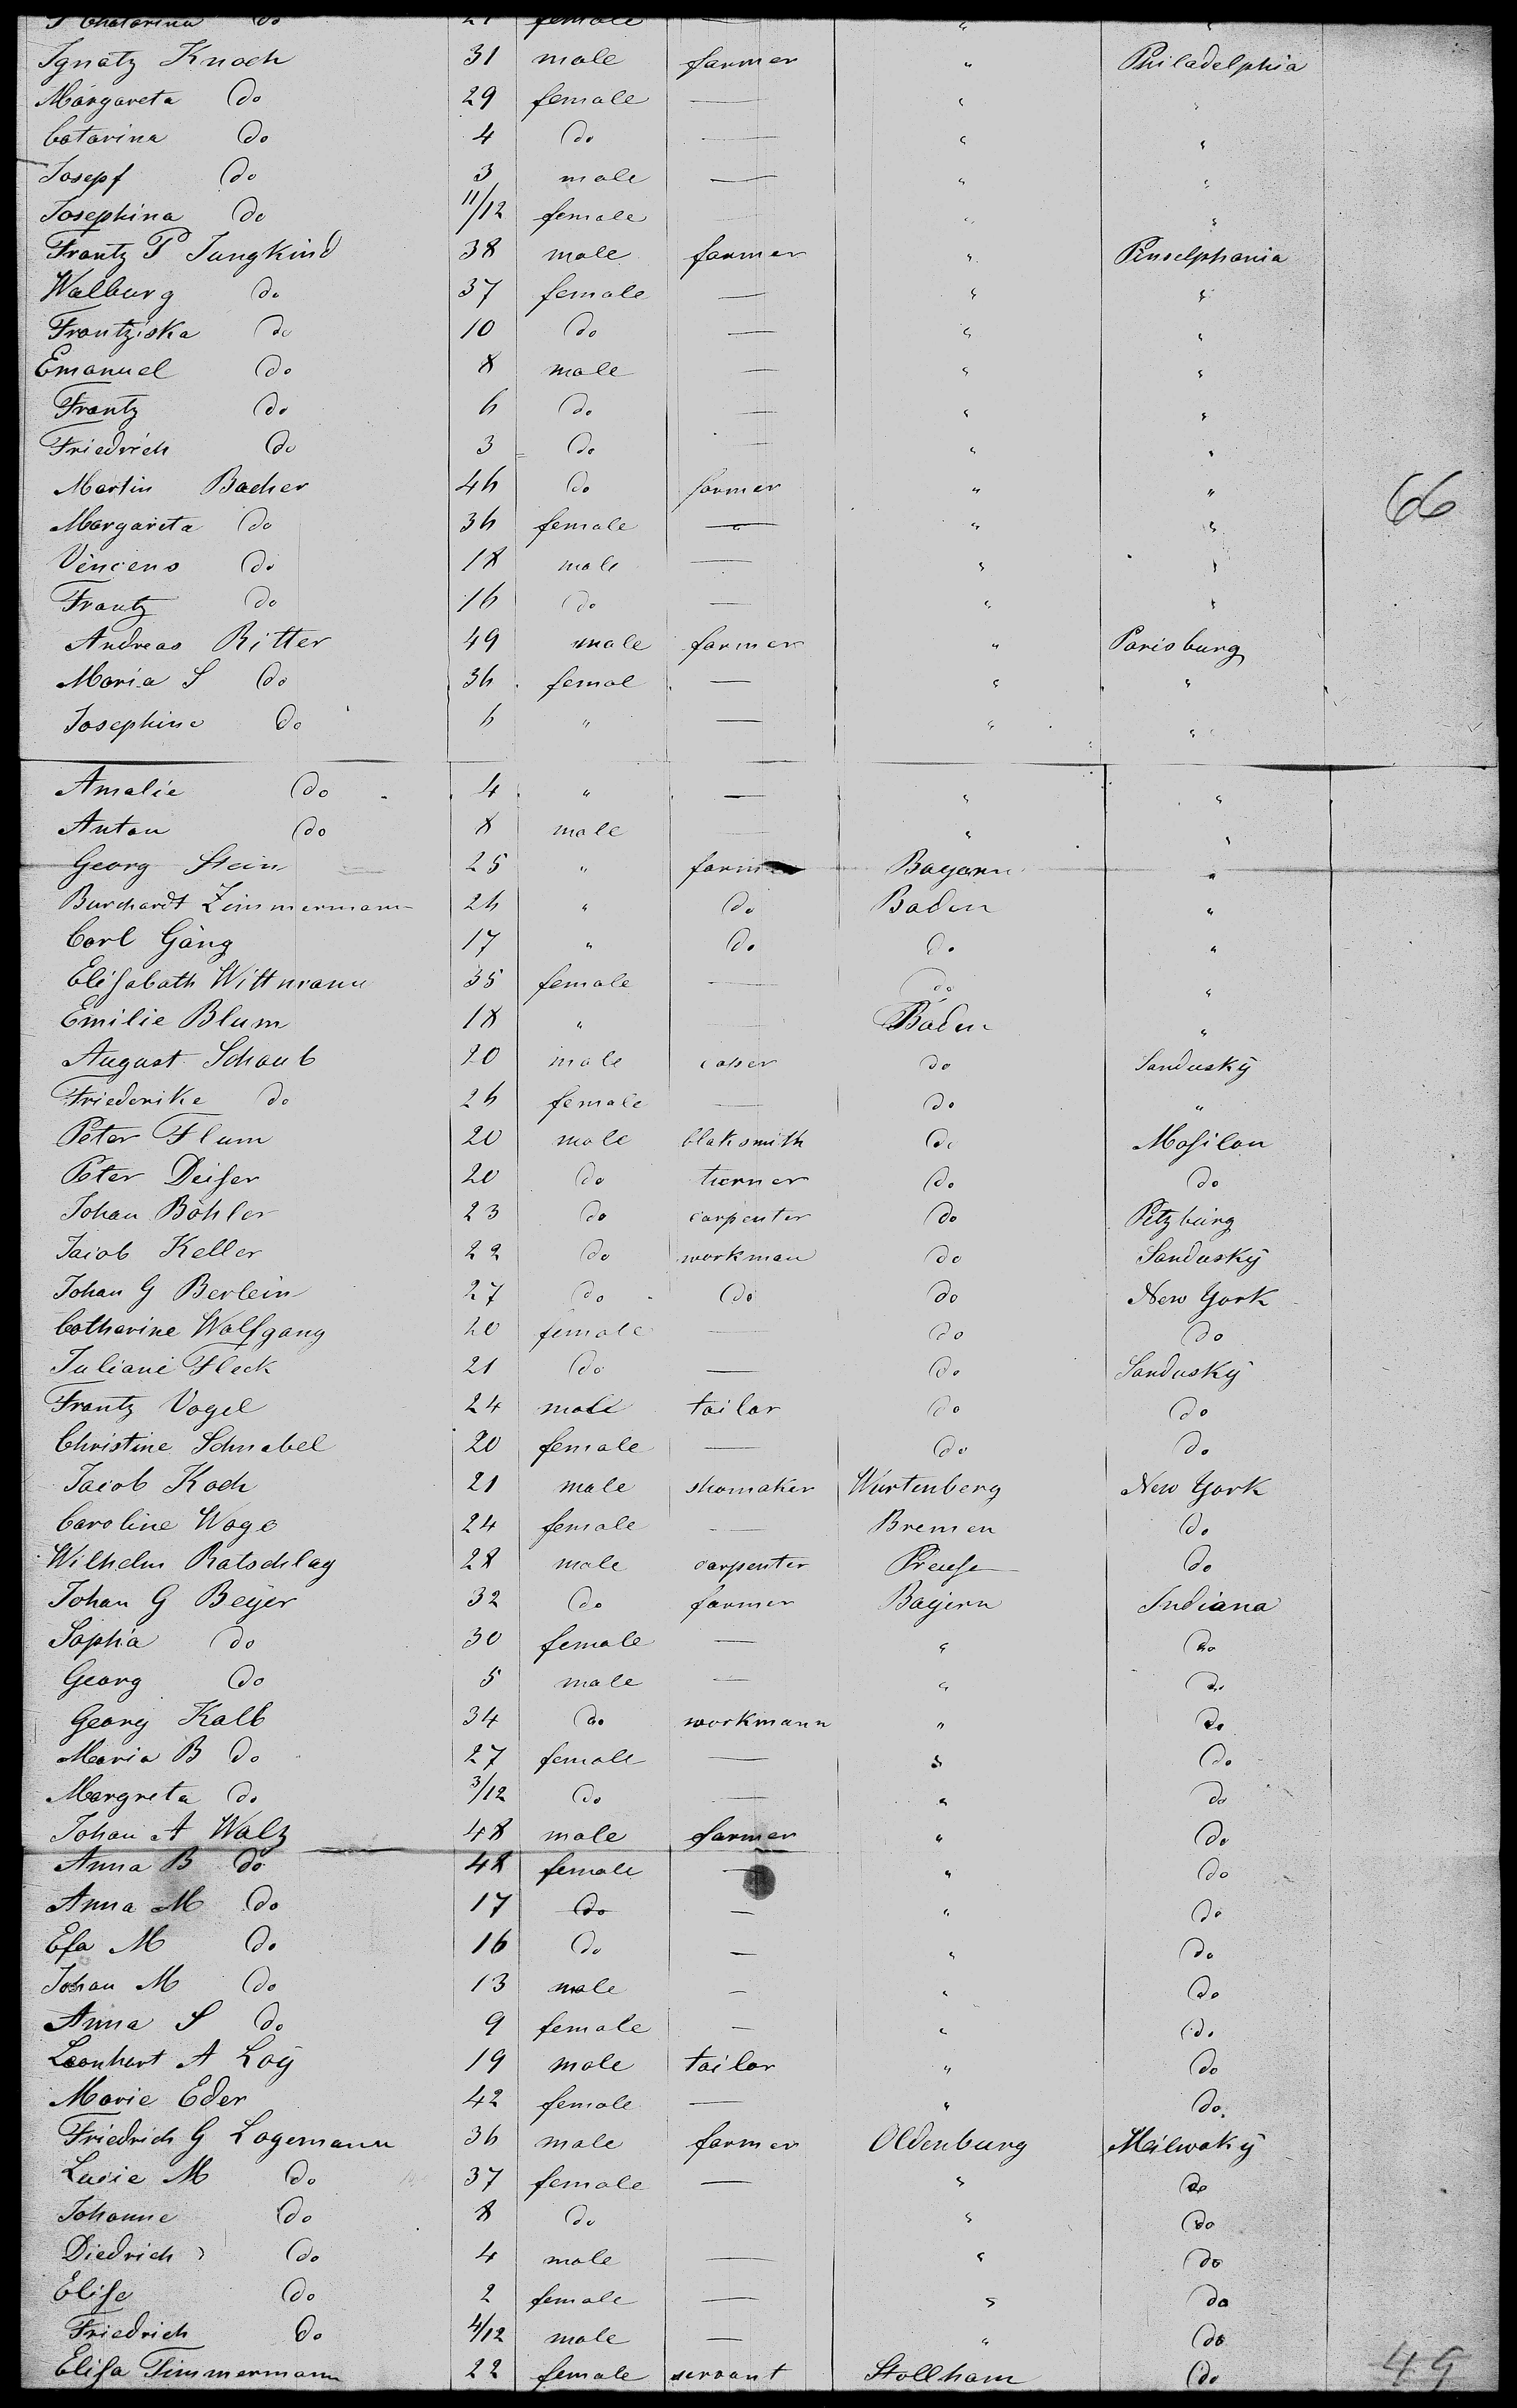 Chatarina do 21 female — " "
Ignatz Knoch 31 male farmer " Philadelphia
Margareta do 29 female — " "
Catarina do 4 do — " "
Josepf do 3 male — " "
Josephina do 11/12 female — " "
Frantz P Jungkind 38 male farmer " Pinselphania
Walburg do 37 female — " "
Frantziska do 10 do — " "
Emanuel do 8 male — " "
Frantz do 6 do — " "
Friedrich do 3 do — " "
Martin Bacher 46 do farmer " "
66
Margareta do 36 female — " "
Vincens do 18 male — " "
Frantz do 16 do — " "
Andreas Ritter 49 male farmer " Parisburg
Maria S do 36 femal — " "
Josephine do 6 " — " "
Amalie do 4 " — " "
Anton do 8 male — " "
Georg Stein 25 " farmer Bayern "
Burchardt Zimmermann 26 " do Baden "
Carl Gäng 17 " do do "
Elisabath Wittmann 35 female — do "
Emilie Blum 18 " — Baden "
August Schaub 20 male do Sandusky
Friederike do 26 female — do "
Peter Flum 20 male blaksmith do Massilon
Peter Deiser 20 do turner do do
Johan Böhler 23 do carpenter do Pitzburg
Jacob Keller 22 do workman do Sandusky
Johan G Berlein 27 do do do New York
Catherine Wolfgang 20 female — do do
Juliane Fleck 21 do — do Sandusky
Frantz Vogel 24 male tailor do do
Christine Schnabel 20 female — do do
Jacob Koch 21 male shomaker Würtenberg New York
Caroline Wage 24 female — Bremen do
Wilhelm Ratschlag 28 male carpenter Preuse do
Johan G Beyer 32 do farmer Bayern Indiana
Sophia do 30 female — " do
Georg do 5 male — " do
Georg Kalb 34 do workmann " do
Maria B do 27 female — " do
Margreta do 3/12 do — " do
Johan A Walz 48 male farmer " do
Anna B do 48 female — " do
Anna M do 17 do — " do
Efa M do 16 do — " do
Johan M do 13 male — " do
Anna S do 9 female — " do
Leonhart A Loy 19 male tailor " do
Marie Eder 42 female — " do
Friedrich G Logemann 36 male farmer Oldenburg Meilwoky
Lucie M do 37 female — " do
Johanne do 8 do " do
Diedrich do 4 male — " do
Elise do 2 female — " do
Friedrich do 4/12 male — " do
Elisa Timmermann 22 female servant Stollham do
49